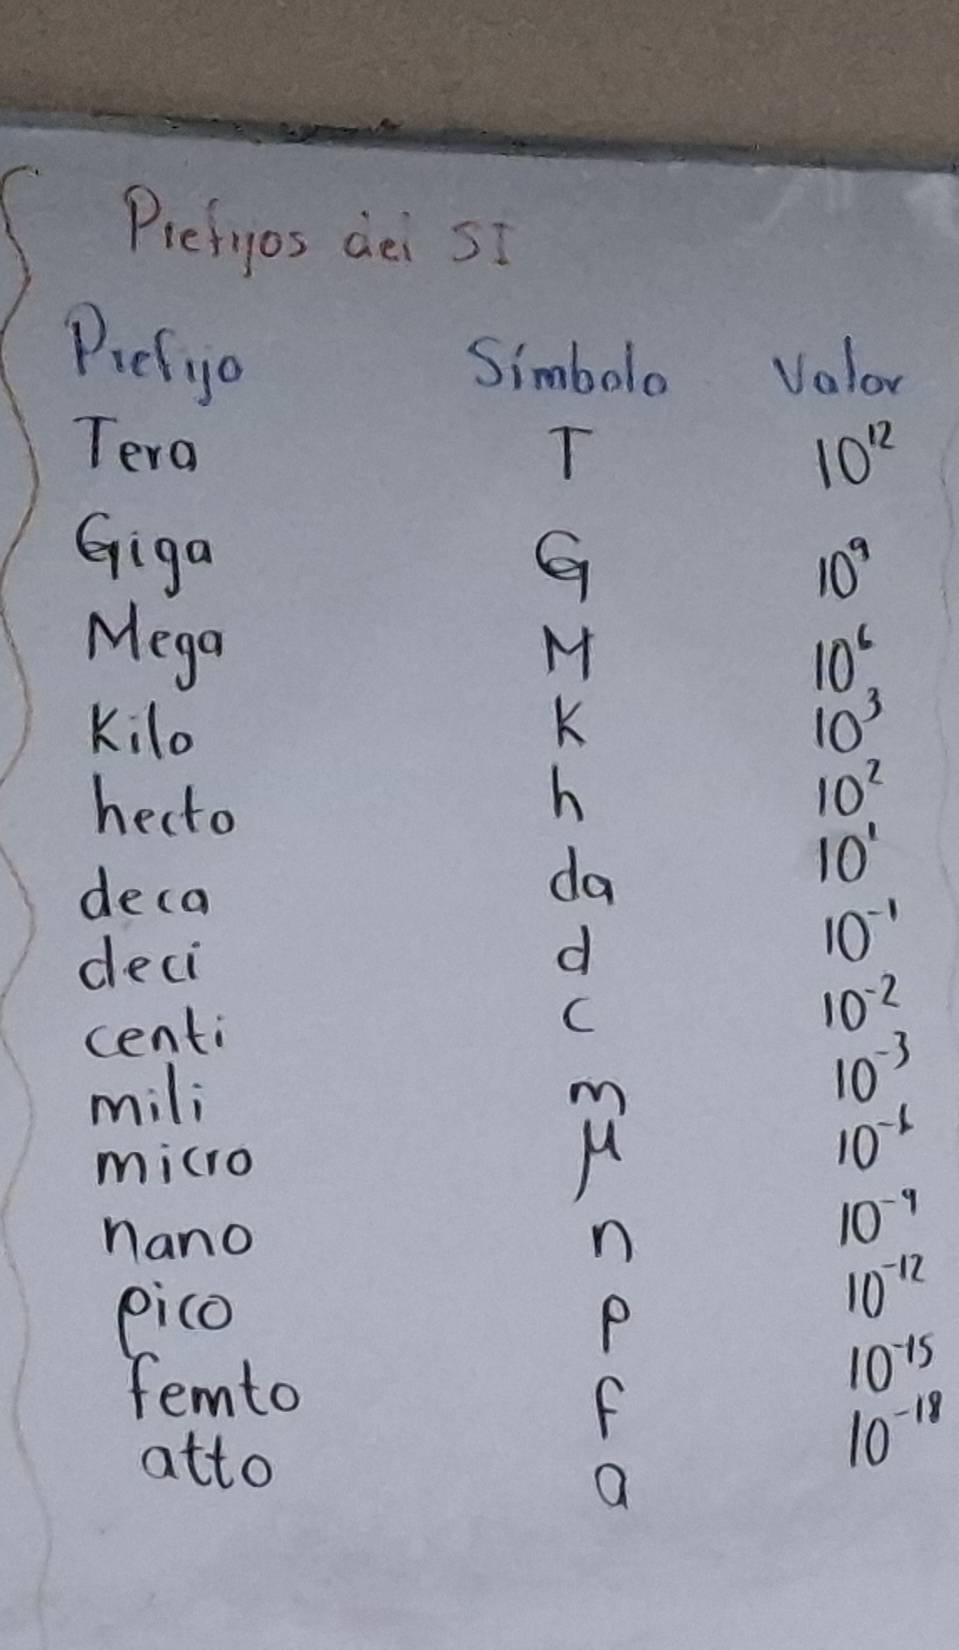 Prefijos del SI
Prefijo Símbolo Valor
Tera T 10¹²
Giga G 10⁹
Mega M 10⁶
Kilo K 10³
hecto h 10²
deca da 10¹
deci d 10⁻¹
centi c 10⁻²
mili m 10⁻³
micro μ 10⁻⁶
nano n 10⁻⁹
pico p 10⁻¹²
femto f 10⁻¹⁵
atto a 10⁻¹⁸